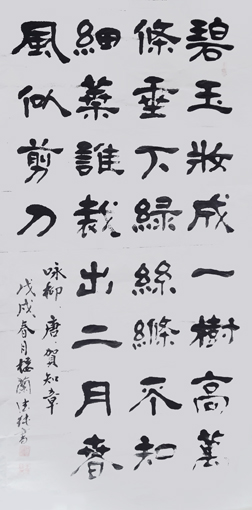 碧玉妝成一樹高萬
條垂下綠絲縧不知
細葉誰裁出二月春
風似剪刀
咏柳 唐 賀知章
戊戌春月樓蘭